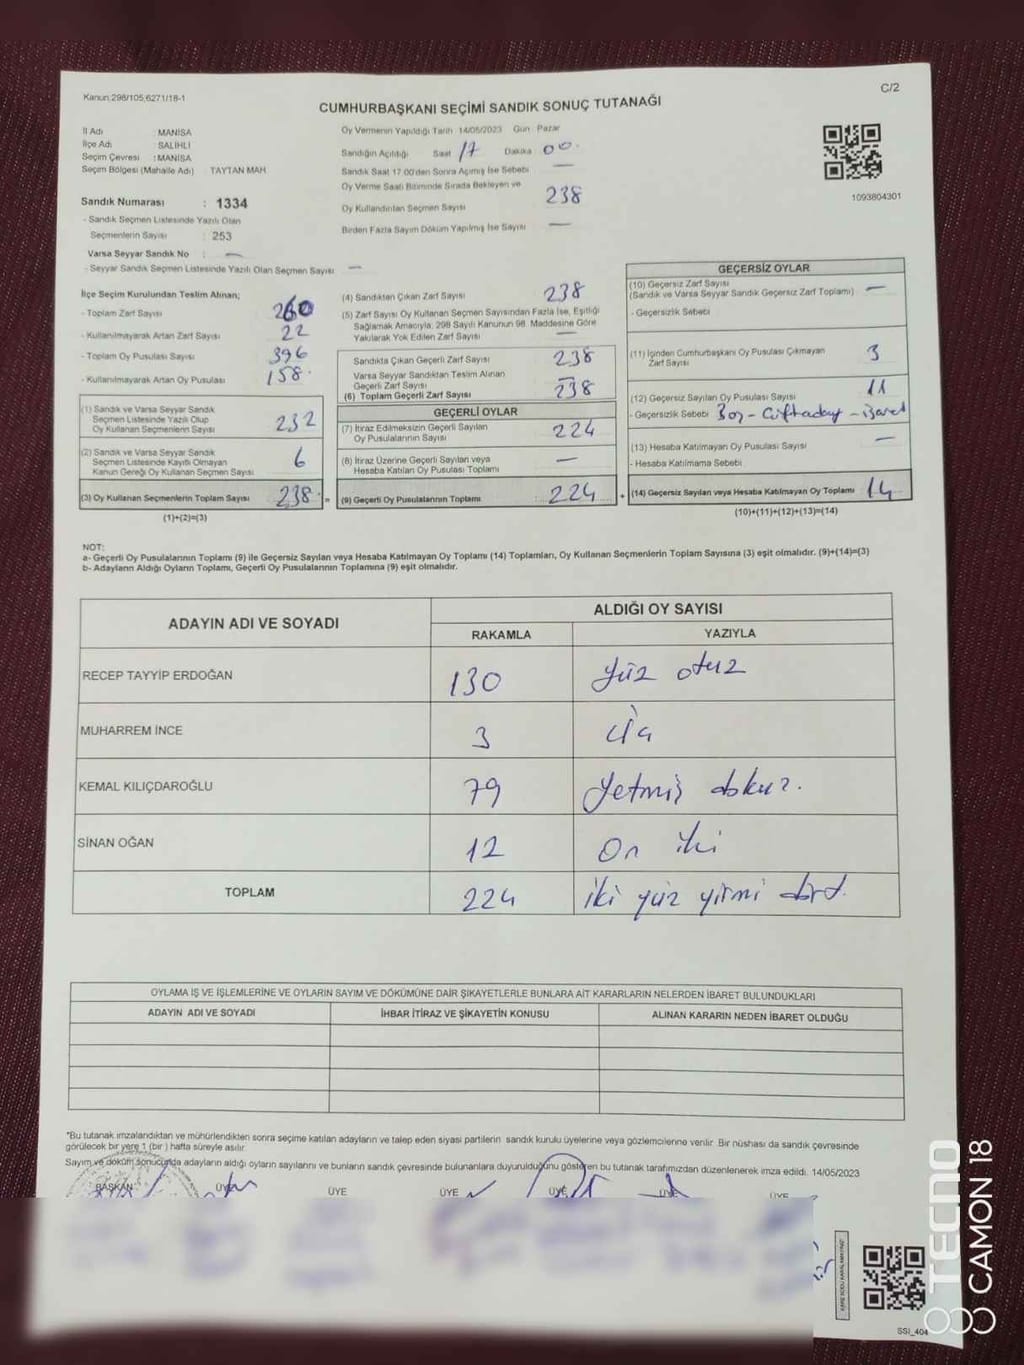 Kanun:298/105;6271/18-1
C/2
CUMHURBAŞKANI SEÇİMİ SANDIK SONUÇ TUTANAĞI
İl Adı : MANİSA
İlçe Adı : SALİHLİ
Seçim Çevresi : MANİSA
Seçim Bölgesi (Mahalle Adı) : TAYTAN MAH
Sandık Numarası : 1334
- Sandık Seçmen Listesinde Yazılı Olan
Seçmenlerin Sayısı : 253
Varsa Seyyar Sandık No : —
- Seyyar Sandık Seçmen Listesinde Yazılı Olan Seçmen Sayısı —
Oy Vermenin Yapıldığı Tarih 14/05/2023 Gün Pazar
Sandığın Açıldığı Saat 17 Dakika 00
Sandık Saat 17:00'den Sonra Açımış İse Sebebi —
Oy Verme Saati Bitiminde Sırada Bekleyen ve
Oy Kullandırılan Seçmen Sayısı 238
Birden Fazla Sayım Döküm Yapılmış İse Sayısı —
1093804301
İlçe Seçim Kurulundan Teslim Alınan;
- Toplam Zarf Sayısı 260
- Kullanılmayarak Artan Zarf Sayısı 22
- Toplam Oy Pusulası Sayısı 396
- Kullanılmayarak Artan Oy Pusulası 158
(1) Sandık ve Varsa Seyyar Sandık
Seçmen Listesinde Yazılı Olup
Oy Kullanan Seçmenlerin Sayısı 232
(2) Sandık ve Varsa Seyyar Sandık
Seçmen Listesinde Kayıtlı Olmayan
Kanun Gereği Oy Kullanan Seçmen Sayısı 6
(3) Oy Kullanan Seçmenlerin Toplam Sayısı 238 =
(1)+(2)=(3)
(4) Sandıktan Çıkan Zarf Sayısı 238
(5) Zarf Sayısı Oy Kullanan Seçmen Sayısından Fazla İse, Eşitliği
Sağlamak Amacıyla; 298 Sayılı Kanunun 98. Maddesine Göre
Yakılarak Yok Edilen Zarf Sayısı —
Sandıkta Çıkan Geçerli Zarf Sayısı 238
Varsa Seyyar Sandıktan Teslim Alınan
Geçerli Zarf Sayısı —
(6) Toplam Geçerli Zarf Sayısı 238
GEÇERLİ OYLAR
(7) İtiraz Edilmeksizin Geçerli Sayılan
Oy Pusulalarının Sayısı 224
(8) İtiraz Üzerine Geçerli Sayılan veya
Hesaba Katılan Oy Pusulası Toplamı —
(9) Geçerli Oy Pusulalarının Toplamı : 224 +
GEÇERSİZ OYLAR
(10) Geçersiz Zarf Sayısı
(Sandık ve Varsa Seyyar Sandık Geçersiz Zarf Toplamı) —
- Geçersizlik Sebebi
(11) İçinden Cumhurbaşkanı Oy Pusulası Çıkmayan
Zarf Sayısı 3
(12) Geçersiz Sayılan Oy Pusulası Sayısı 11
- Geçersizlik Sebebi Boş - Çift aday - işaret
(13) Hesaba Katılmayan Oy Pusulası Sayısı —
- Hesaba Katılmama Sebebi
(14) Geçersiz Sayılan veya Hesaba Katılmayan Oy Toplamı 14
(10)+(11)+(12)+(13)=(14)
NOT:
a- Geçerli Oy Pusulalarının Toplamı (9) ile Geçersiz Sayılan veya Hesaba Katılmayan Oy Toplamı (14) Toplamları, Oy Kullanan Seçmenlerin Toplam Sayısına (3) eşit olmalıdır. (9)+(14)=(3)
b- Adayların Aldığı Oyların Toplamı, Geçerli Oy Pusulalarının Toplamına (9) eşit olmalıdır.
ADAYIN ADI VE SOYADI
ALDIĞI OY SAYISI
RAKAMLA YAZIYLA
RECEP TAYYİP ERDOĞAN 130 yüz otuz
MUHARREM İNCE 3 üç
KEMAL KILIÇDAROĞLU 79 Yetmiş dokuz.
SİNAN OĞAN 12 On iki
TOPLAM 224 iki yüz yirmi dört.
OYLAMA İŞ VE İŞLEMLERİNE VE OYLARIN SAYIM VE DÖKÜMÜNE DAİR ŞİKAYETLERLE BUNLARA AİT KARARLARIN NELERDEN İBARET BULUNDUKLARI
ADAYIN ADI VE SOYADI İHBAR İTİRAZ VE ŞİKAYETİN KONUSU ALINAN KARARIN NEDEN İBARET OLDUĞU
*Bu tutanak imzalandıktan ve mühürlendikten sonra seçime katılan adayların ve talep eden siyasi partilerin sandık kurulu üyelerine veya gözlemcilerine verilir. Bir nüshası da sandık çevresinde
görülecek bir yere 1 (bir ) hafta süreyle asılır.
Sayım ve döküm sonucunda adayların aldığı oyların sayılarını ve bunların sandık çevresinde bulunanlara duyurulduğunu gösteren bu tutanak tarafımızdan düzenlenerek imza edildi. 14/05/2023
BAŞKAN ÜYE ÜYE ÜYE ÜYE ÜYE ÜYE
SSİ_404
TECNO
CAMON 18